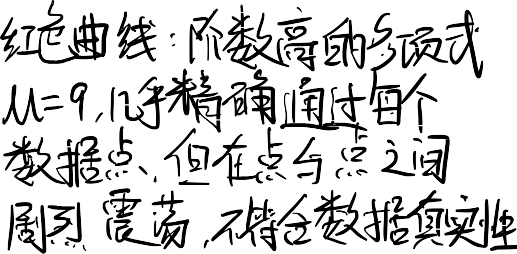 红色曲线：阶数高的多项式
M=9，几乎精确通过每个
数据点、但在点与点之间
剧烈震荡，不符合数据真实性